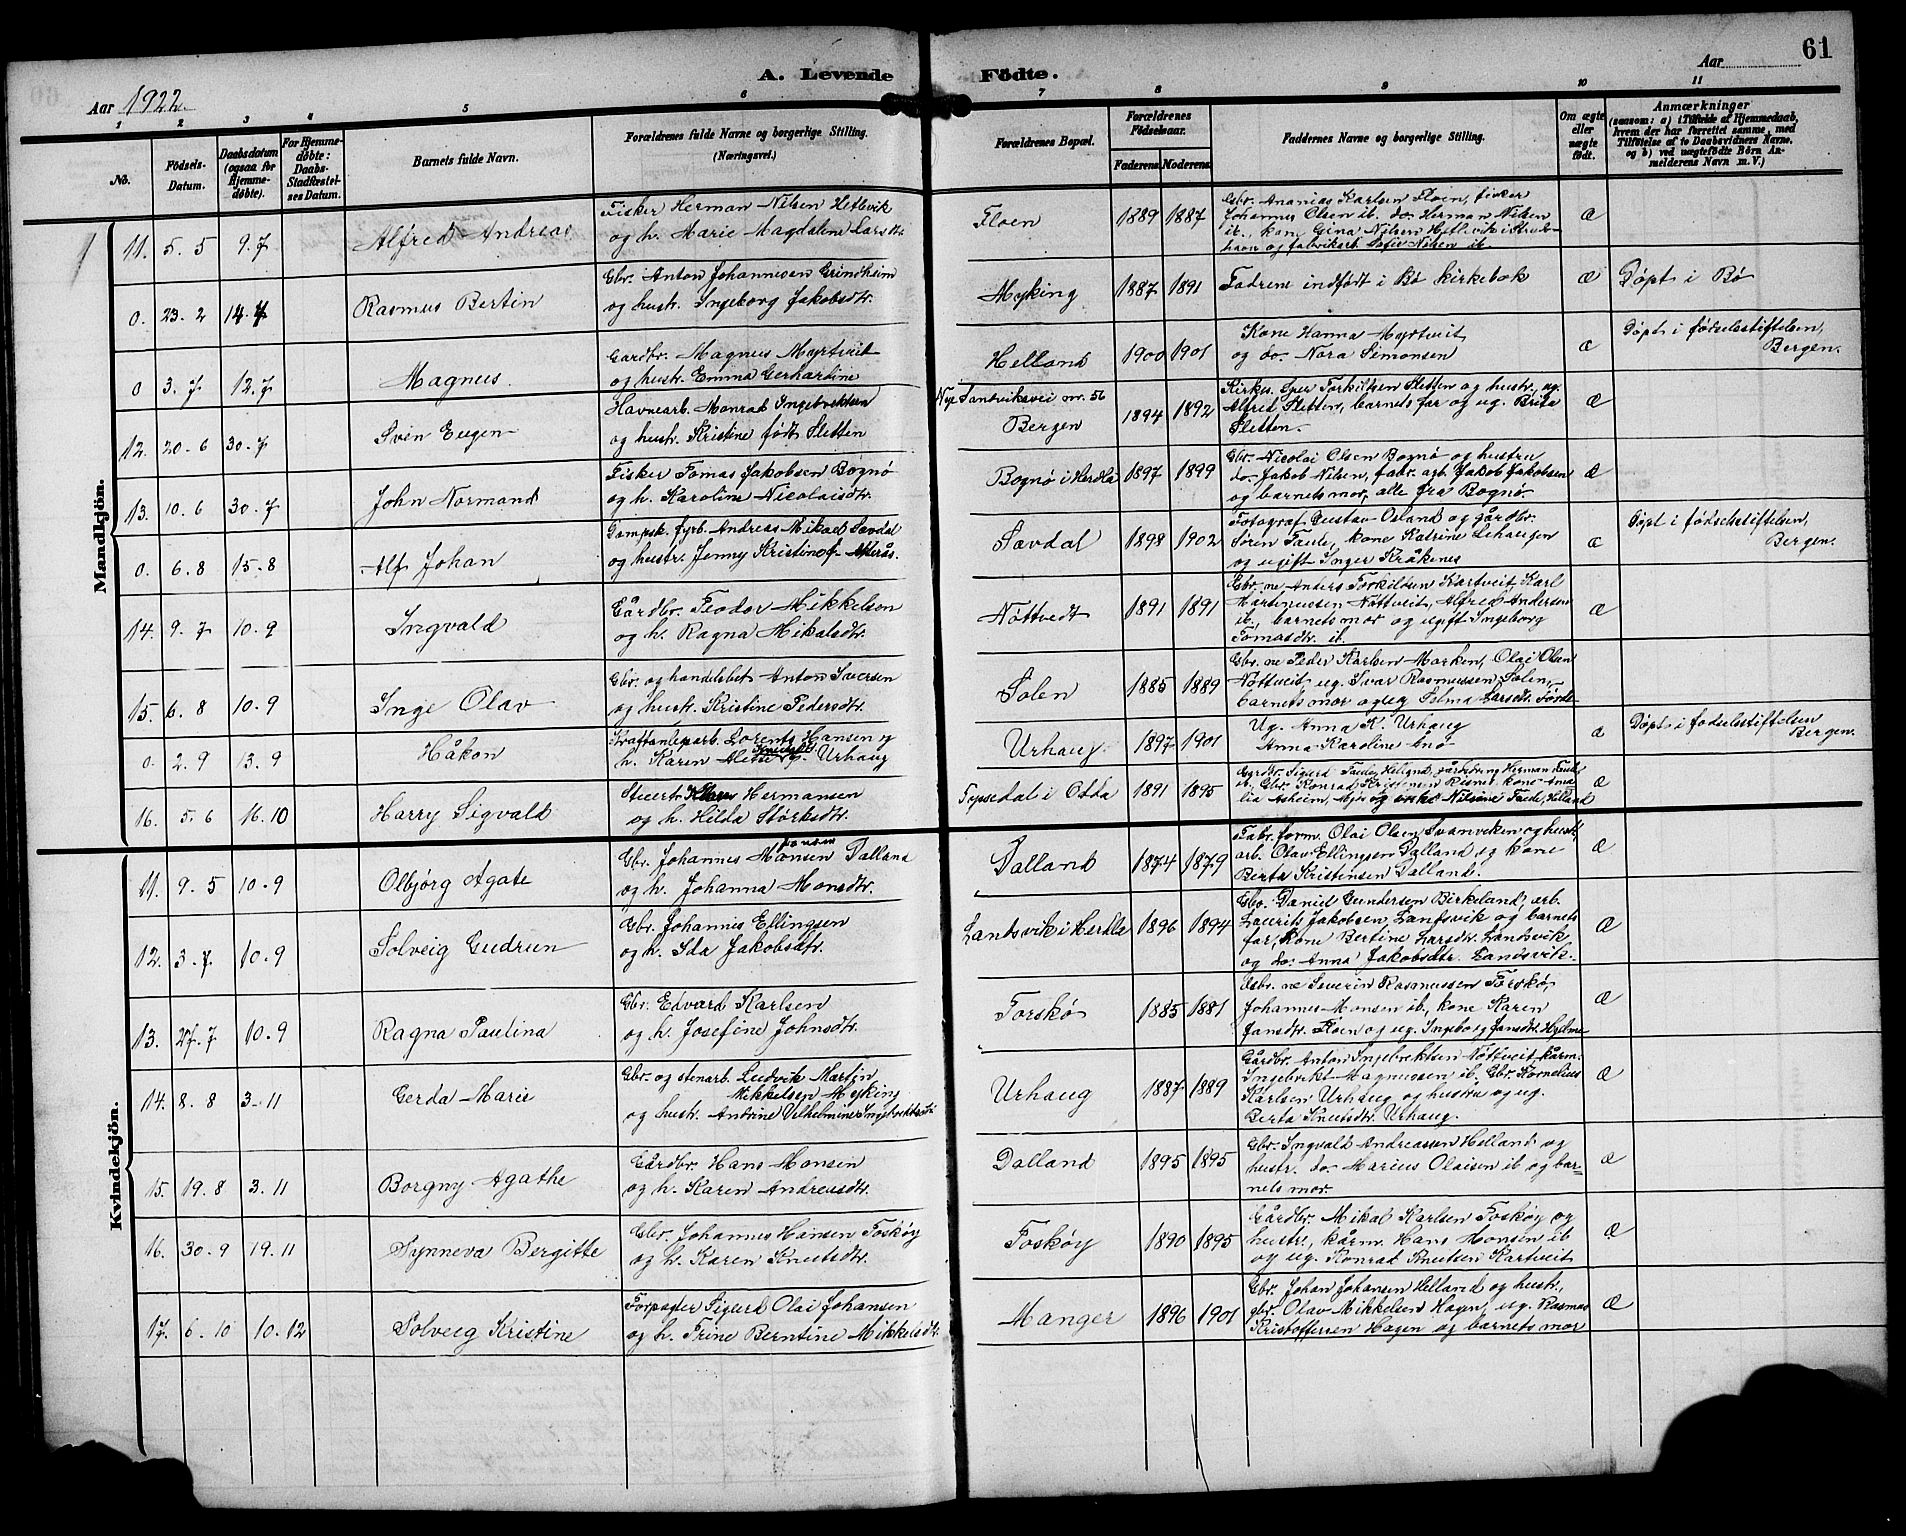 A. Levende Födte.
61
Aar 1922.
Aar
1 2 3 4 5 6 7 8 9 10 11
No.
Födsels-Datum.
Daabsdatum (ogsaa for Hjemme-døbte).
For Hjemme-döbte: Daabs-Stadfæstel-ses Datum.
Barnets fulde Navn.
Forældrenes fulde Navne og borgerlige Stilling. (Næringsvei.)
Forældrenes Bopæl.
Forældrenes Födselsaar.
Faderens. Moderens.
Faddernes Navne og borgerlige Stilling.
Om ægte eller uægte født.
Anmærkninger
(saasom: a) i Tilfælde af Hjemmedaab, hvem der har forrettet samme, med Tilföielse af to Daabsvidners Navne, og b) ved uægtefödte Börn An-melderens Navn m. V.)
Mandkjön.
11. 5. 5 9. 7 Alfred Andreas
Fisker Herman Nilsen Hetlevik
og h. Marie Magdalene Larsdtr.
Floen 1889 1887
Gbr. Ananias Karlsen Floen, fisker
Johannes Olsen ib. do. Herman Nilsen
ib., kone Gina Nilsen Hetlevik i
havn og fabrikarb. Sofie Nilsen ib.
æ
0. 23. 2 14. 7 Rasmus Bertin
Gbr. Anton Johannesen Grindheim
og hustr. Ingeborg Jakobsdtr.
Myking 1887 1891
Fadrene indført i Bø kirkebok
æ Døpt i Bø
0 3. 7 12. 7 Magnus.
Gardbr. Magnus Myrtveit
og hustr. Emma Gerhardine
Helland 1900 1901
Kone Hanna Myrtveit
og do. Nora Simonsen
æ Døpt i fødselsstiftelsen,
Bergen.
12. 20. 6 30. 7 Svein Eugen
Havnearb. Monrad Ingebrektsen
og hustr. Kristine født Sletten
Nye Sandviksvei nr. 56
Bergen 1894 1892
Kirkes. Sper Torkildsen Sletten og hustr., ug.
Alfred Sletten, barnets far og ug. Brita
Sletten.
æ
13. 10. 6 30. 7 John Normand
Fisker Tomas Jakobsen Bognø
og h. Karoline Nicolaisdtr.
Bognø i Herdla 1897 1899
Gbr. Nicolai Olsen Bognø og hustru
do. Jakob Nilsen, fabr. arb. Jakob Jakobsen
og barnets mor, alle fra Bognø.
æ
0. 6. 8 15. 8 Alf Johan
Dampsk. fyrb. Andreas Mikael Sævdal
og hustr. Jenny Kristine f.
Sævdal 1898 1902
Fotograf Gustav Osland og gårdbr.
Søren Taule, kone Katrine Lihaugen
og ugift Inger Kråkenes
æ Døpt i fødselsstiftelsen,
Bergen.
14. 9. 7 10. 9 Ingvald
Gårdbr. Teodor Mikkelsen
og h. Ragna Mikalsdtr.
Nøttvedt 1891 1891
Gbr. ne Anders Torkildsen Kartveit, Karl
Martinussen Nøttveit, Alfred Andersen
ib., barnets mor og ugift Ingeborg
Tomasdtr. ib.
æ
15. 6. 8 10. 9 Inge Olav
Gbr. og handelsbet. Anton Iversen
og hustr. Kristine Pedersdtr.
Solen 1885 1889
Gbr. ne Peder Karlsen Marken, Olai Olsen
Nøttveit ug. Ivar Rasmussen Solen,
barnets mor og ug Selma Larsdtr. Førde
æ
0. 2. 9 13. 9 Håkon
Kraftanlegsarb. Lorents Hansen og
h. Karen Aletse Knutsdtr. Urhaug
Urhaug 1897 1901
Ug. Anna K. Urhaug
Anna Karoline Anø
æ Døpt i fødselsstiftelsen
Bergen.
16. 5. 6 16. 10 Harry Sigvald
Stuert Hermansen
og h. Hilda Størksdtr.
Tyssedal i Odda 1891 1895
Gardbr. Sigurd Taule, Helland, gårdsdreng Herman Taule
ib., Gbr. Konrad Kristensen Risnes, kone Ama-
lia Askeim, og enke Nilsine Taule, Helland
æ
Kvindekjön.
11. 9. 5 10. 9 Olbjörg Agate
Gbr. Johannes Monsen Dalland
og h. Johanna Monsdtr.
Dalland 1874 1879
Fabr. form. Olai Olsen Svanviken og hustr.
arb. Olav Ellingsen Dalland og kone
Berta Kristensen Dalland.
æ
12. 3. 7 10. 9 Solveig Gudrun
Gbr. Johannes Ellingsen
og h. Ida Jakobsdtr.
Landsvik i Herdla 1896 1894
Gbr. Daniel Gundersen Birkeland, arb.
Laurits Jakobsen, Landsvik og barnets
far, kone Bertine Larsdtr. Landsvik
og do. Anna Jakobsdtr. Landsvik.
æ
13. 27. 7 10. 9 Ragna Paulina
Gbr. Edvard Karlsen
og h. Josefine Johnsdtr.
Forskø 1885 1881
Gbr. ne Severin Rasmussen Forskø,
Johannes Monsen ib., kone Karen
Jansdtr. Floen og ug. Ingeborg Jansdtr. Hjelme
æ
14. 8. 8 3. 11 Gerda Marie
Gbr. og stenarb. Ludvik Martin
Mikkelsen Myking
og hustr. Andrine Vilhelmine Ingebrektsdtr.
Urhaug 1887 1889
Gårdbr. Anton Ingebrektsen Nøttveit, kårm.
Ingebrikt Magnussen ib., Gbr. Kornelius
Karlsen Urhaug og hustru og ug.
Berta Knutsdtr. Urhaug.
æ
15. 19. 8 3. 11 Borgny Agathe
Gårdbr. Hans Monsen
og h. Karen Andreasdtr.
Dalland 1895 1895
Gbr. Ingvald Andreassen Helland og
hustr. do. Marius Olaisen ib og bar-
nets mor.
æ
16. 30. 9 19. 11 Synneva Bergitte
Gbr. Johannes Hansen Foskøy
og h. Karen Knutsdtr.
Foskøy 1890 1895
Gårdbr. Mikal Karlsen Foskøy og
hustr., kårm. Hans Monsen ib
og ug. Konrad Knutsen Kartveit
æ
17. 6. 10 10. 12 Solveig Kristine
Forpagter Sigurd Olai Johansen
og h. Trine Berntine Mikkelsdtr.
Manger 1896 1901
Gbr. Johan Johansen Helland og hustr.,
gbr. Olav Mikkelsen Hagen, ug. Rasmus
Kristoffersen Hagen og barnets mor
æ